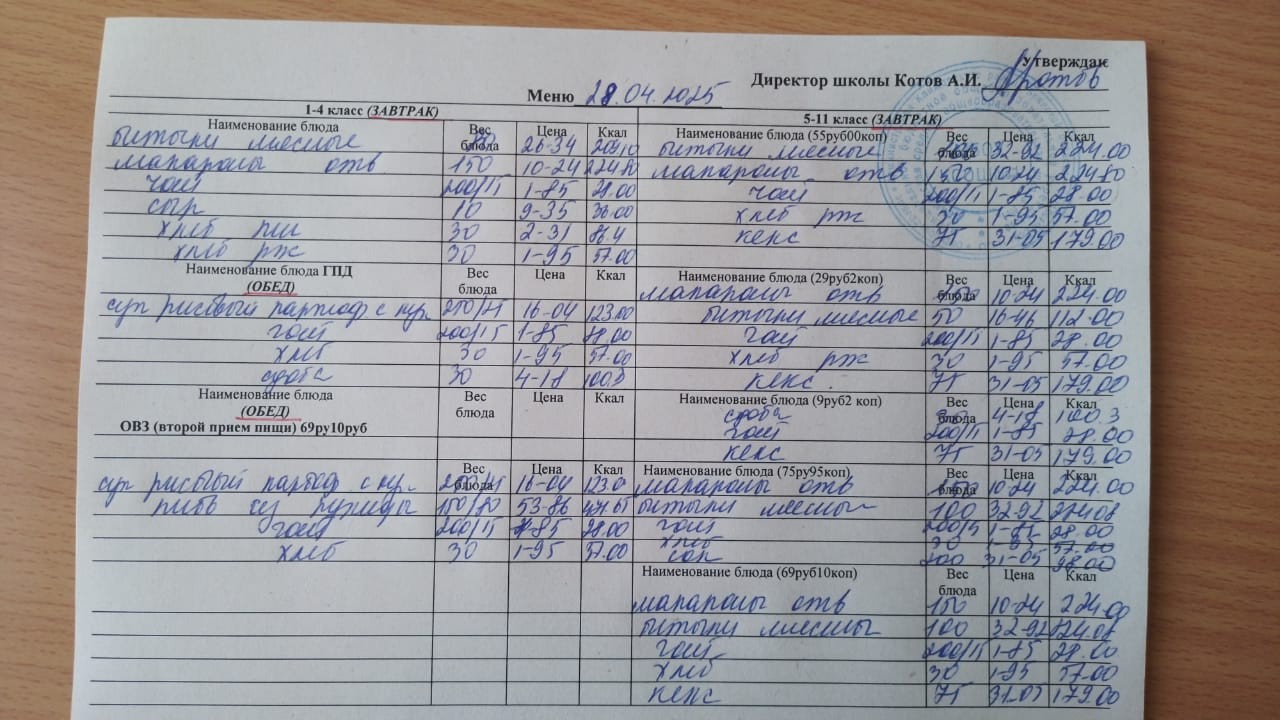 Утверждаю
Директор школы Котов А.И.
Меню 28.04.2025
1-4 класс (ЗАВТРАК)
Наименование блюда Вес блюда Цена Ккал
биточки мясные 80 26-34
макароны отв 150 10-24 224.80
чай 200/15 1-85 28.00
сыр 10 9-35 36.00
хлеб пш 30 2-31
хлеб рж 30 1-95 57.00
Наименование блюда ГПД Вес блюда Цена Ккал
(ОБЕД)
суп рисовый картоф с кур. 250/25 16-04 123.00
чай 200/15 1-85 28.00
хлеб 30 1-95 57.00
сдоба 30 4-18 100.3
Наименование блюда Вес блюда Цена Ккал
(ОБЕД)
ОВЗ (второй прием пищи) 69ру10руб
Вес блюда Цена Ккал
суп рисовый картоф с кур. 16-04 123.0
из курицы 53-86
чай 200/15 1-85 28.00
хлеб 30 1-95 57.00
5-11 класс (ЗАВТРАК)
Наименование блюда (55руб00коп) Вес блюда Цена Ккал
биточки мясные 100 32-92 224.00
макароны отв 150 10-24 224.80
чай 200/15 1-85 28.00
хлеб рж 30 1-95 57.00
кекс 75 31-05 179.00
Наименование блюда (29руб2коп) Вес блюда Цена Ккал
макароны отв 150 10-24 224.00
биточки мясные 50 16-46 112.00
чай 200/15 1-85 28.00
хлеб рж 30 1-95 57.00
кекс. 75 31-05 179.00
Наименование блюда (9руб2 коп) Вес блюда Цена Ккал
сдоба 30 4-18 100.3
чай 200/15 1-85 28.00
кекс 75 31-05 179.00
Наименование блюда (75ру95коп) Вес блюда Цена Ккал
макароны отв 150 10-24 224.00
биточки мясные 100 32-92 224.08
чай 200/15 1-85 28.00
хлеб 30 1-95 57.00
сок 200 31-05 98.00
Наименование блюда (69руб10коп) Вес блюда Цена Ккал
макароны отв 150 10-24 224.00
биточки мясны 100 32-92 224.08
чай 200/15 1-85 28.00
хлеб 30 1-95 57.00
кекс 75 31-05 179.00